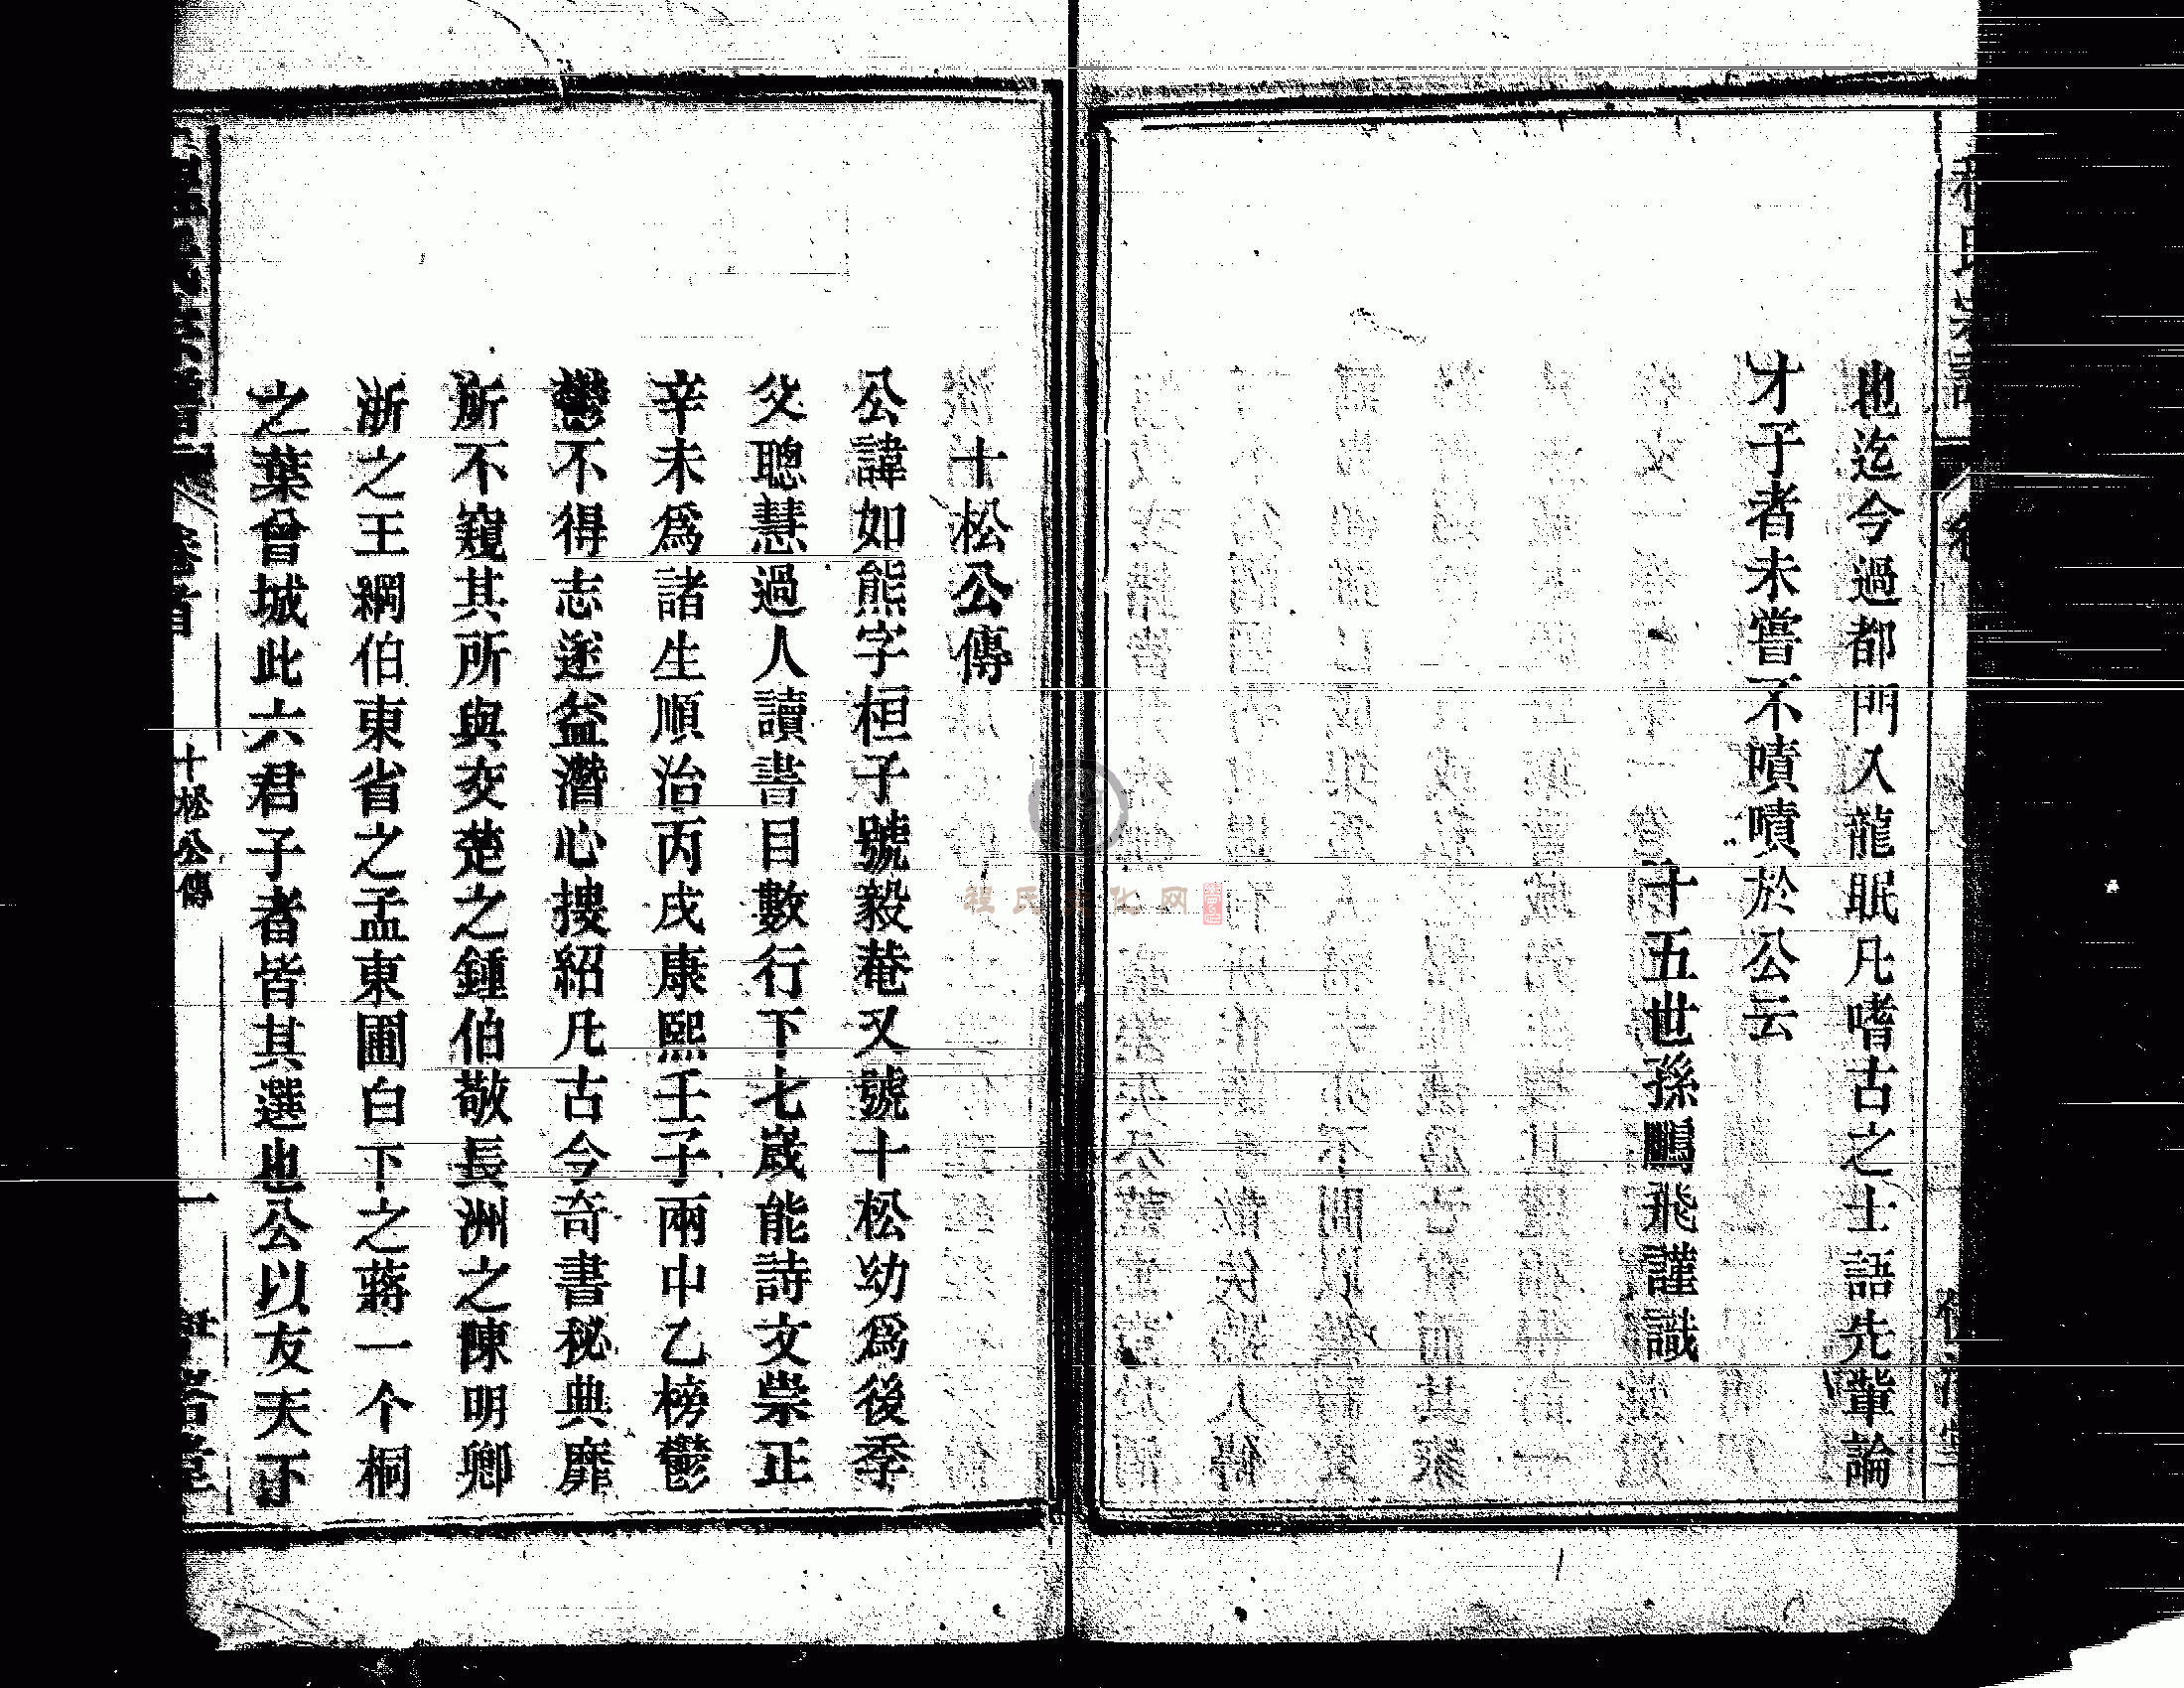 也迄今過都門入龍眠凡嗜古之士語先輩論
才子者未嘗不嘖嘖於公云
十五世孫鵬飛謹識
十松公傳
公諱如熊字桓子號毅菴又號十松幼爲後季
父聰慧過人讀書目數行下七嵗能詩文崇正
辛未爲諸生順治丙戌康熙壬子兩中乙榜鬱
鬱不得志遂益濳心搜紹凡古今奇書秘典靡
所不窺其所與交楚之鍾伯敬長洲之陳明卿
浙之王綱伯東省之孟東圃白下之蔣一个桐
之葉曾城此六君子者皆其選也公以友天下
十松公傳
一
程氏文化网